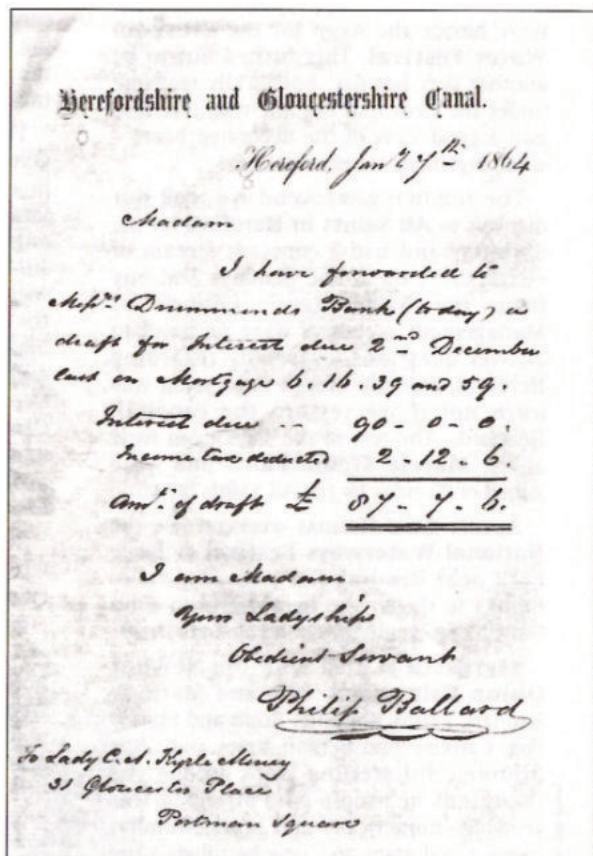 Herefordshire and Gloucestershire Canal.
Hereford, Jany 7th 1864
Madam
I have forwarded to
Messrs Drummonds Bank (today) a
draft for Interest due 2nd December
last on Mortgage 6. 16. 39 and 59.
Interest due --- 90 - 0 - 0.
Income tax deducted 2 - 12 - 6
Amt. of draft £ 87 - 7 - 6.
I am Madam
Your Ladyships
Obedient Servant
Philip Ballard
To Lady C. A. Kyrle Money
31 Gloucester Place
Portman Square